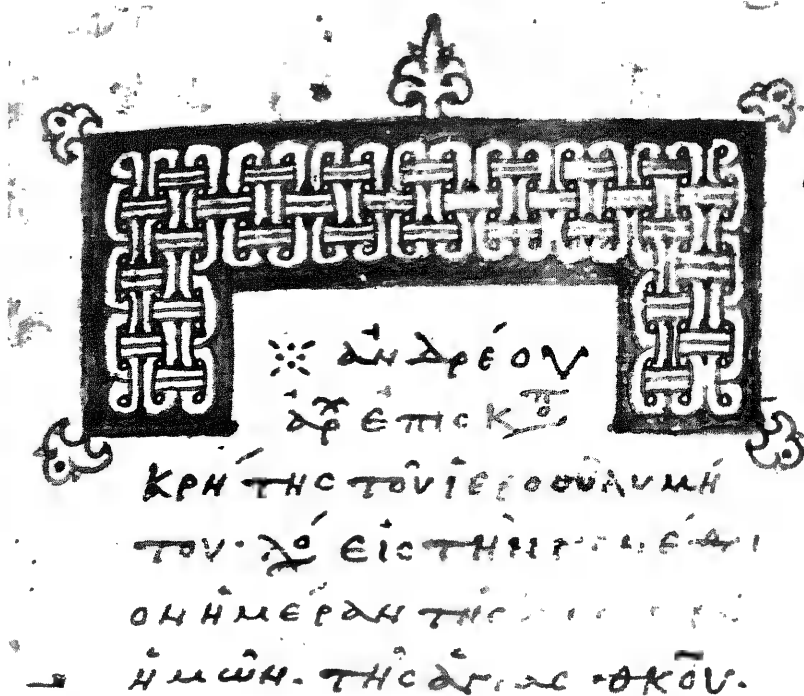 ※ ἀνδρέου
ἀρχ ἐπισκπο
κρήτης τοῦ ἱεροσολυμή
του· λό εἰς τὴν
ον ἡμέραν τῆς
ἡμῶν. τῆς ἁγίας θκου.